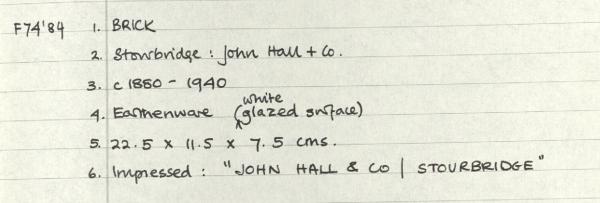 F74'84 1. BRICK
2. Stourbridge : John Hall + Co.
3. c 1880 - 1940
4. Earthenware (white glazed surface)
5. 22.5 x 11.5 x 7.5 cms.
6. Impressed : "JOHN HALL & CO | STOURBRIDGE"